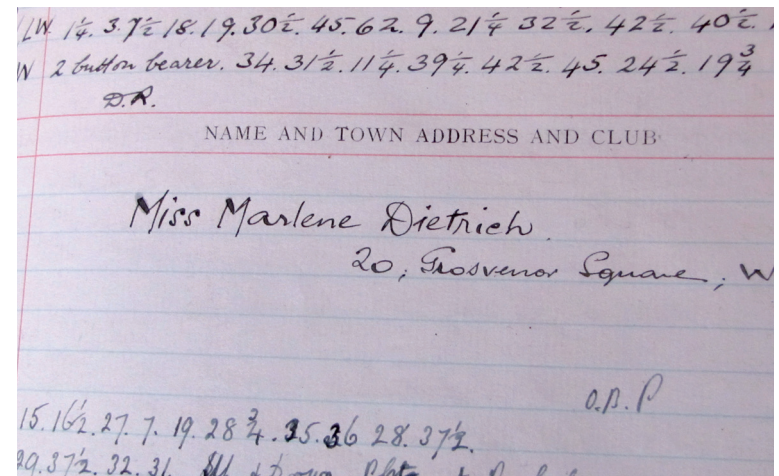 LW. 1¼. 3. 7½ 18. 19. 30½. 45. 62. 9. 21¼ 32½. 42½. 40½.
W 2 button bearer. 34. 31½. 11¼. 39¼. 42½. 45. 24½. 19¾
D.R.
NAME AND TOWN ADDRESS AND CLUB
Miss Marlene Dietrich.
20, Grosvenor Square, W
O.B.P
15. 16½. 27. 7. 19. 28¾. 35. 36 28. 37½.
29. 37½. 32. 31.